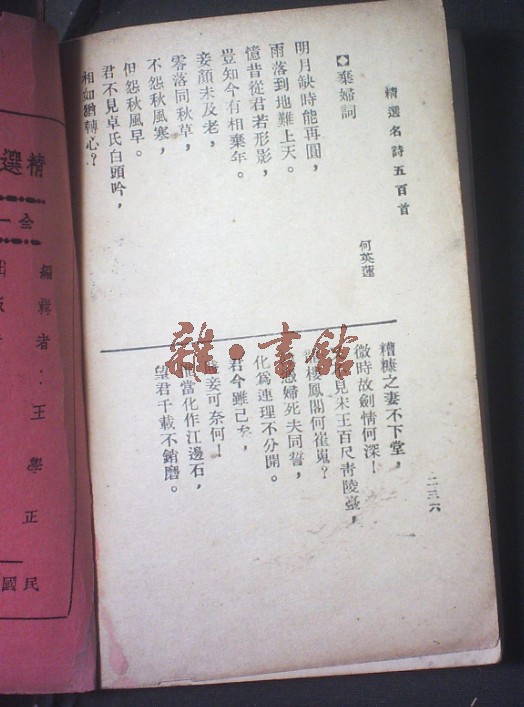 精選名詩五百首
◆棄婦詞
何英蓮
明月缺時能再圓，
雨落到地難上天。
憶昔從君若形影，
豈知今有相棄年。
妾顏未及老，
零落同秋草，
不怨秋風寒，
但怨秋風早。
君不見卓氏白頭吟，
相如猶轉心？
糟糠之妻不下堂，
微時故劍情何深！
見宋王百尺靑陵臺，
樓鳳閣何崔嵬？
婦死夫同誓，
化爲連理不分開。
君今雖已矣，
妾可奈何！
當化作江邊石，
望君千載不銷磨。
二三六
雜·書館
精選
全一
編輯者：王學正
出版者
民國